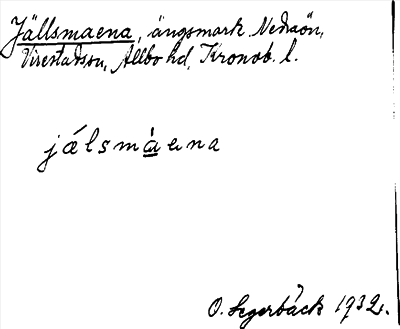 Jällsmaena, ängsmark Nedraön,
Virestadssn, Allbo hd, Kronob. l.
jálsmàena
O. Segerbäck 1932.